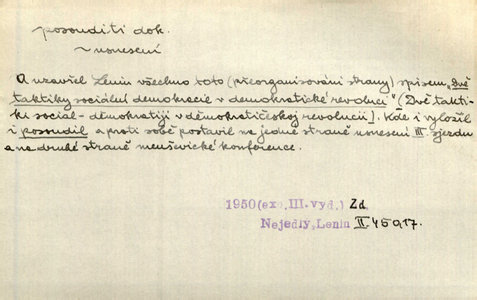 posouditi dok.
~ usnesení
A uzavřel Lenin všechno toto (přeorganisování strany) spisem „Dvě
taktiky sociální demokracie v demokratické revoluci" (Dvě takti-
ki social-děmokratiji v děmokratičeskoj revolucii). Kde i vyložil
i posoudil a proti sobě postavil na jedné straně usnesení III. sjezdu
a na druhé straně menševické konference.
1950 (exc, III. vyd,) Zd.
Nejedly, Lenin II. 459 17.